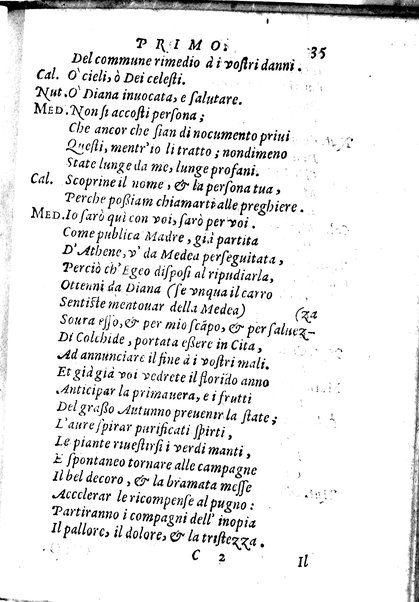 PRIMO. 35
Del commune rimedio à i vostri danni.
Cal. O' cieli, ò Dei celesti.
Nut. O' Diana inuocata, e salutare.
MED. Non si accosti persona;
Che ancor che sian di nocumento priui
Questi, mentr'io li tratto; nondimeno
State lunge da me, lunge profani.
Cal. Scoprine il nome, & la persona tua,
Perche possiam chiamarti alle preghiere.
MED. Io sarò quì con voi, sarò per voi.
Come publica Madre, già partita
D'Athene, v' da Medea perseguitata,
Perciò ch'Egeo disposi al ripudiarla,
Ottenni da Diana (se vnqua il carro
Sentiste mentouar della Medea) (za
Soura esso, & per mio scāpo, & per saluez-
Di Colchide, portata essere in Cita,
Ad annunciare il fine à i vostri mali.
Et già già voi vedrete il florido anno
Anticipar la primauera, e i frutti
Del grasso Autunno preuenir la state;
L'aure spirar purificati spirti,
Le piante riuestirsi i verdi manti,
E spontaneo tornare alle campagne
Il bel decoro, & la bramata messe
Accelerar le ricompense al pugno:
Partiranno i compagni dell' inopia
Il pallore, il dolore, & la tristezza.
C 2 Il